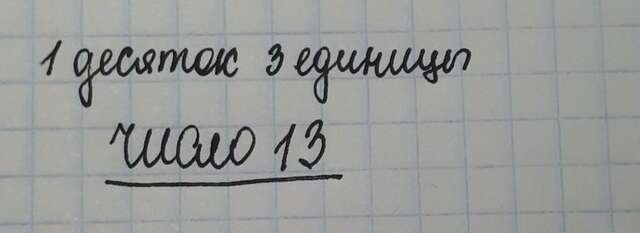 1 десяток 3 единицы
число 13